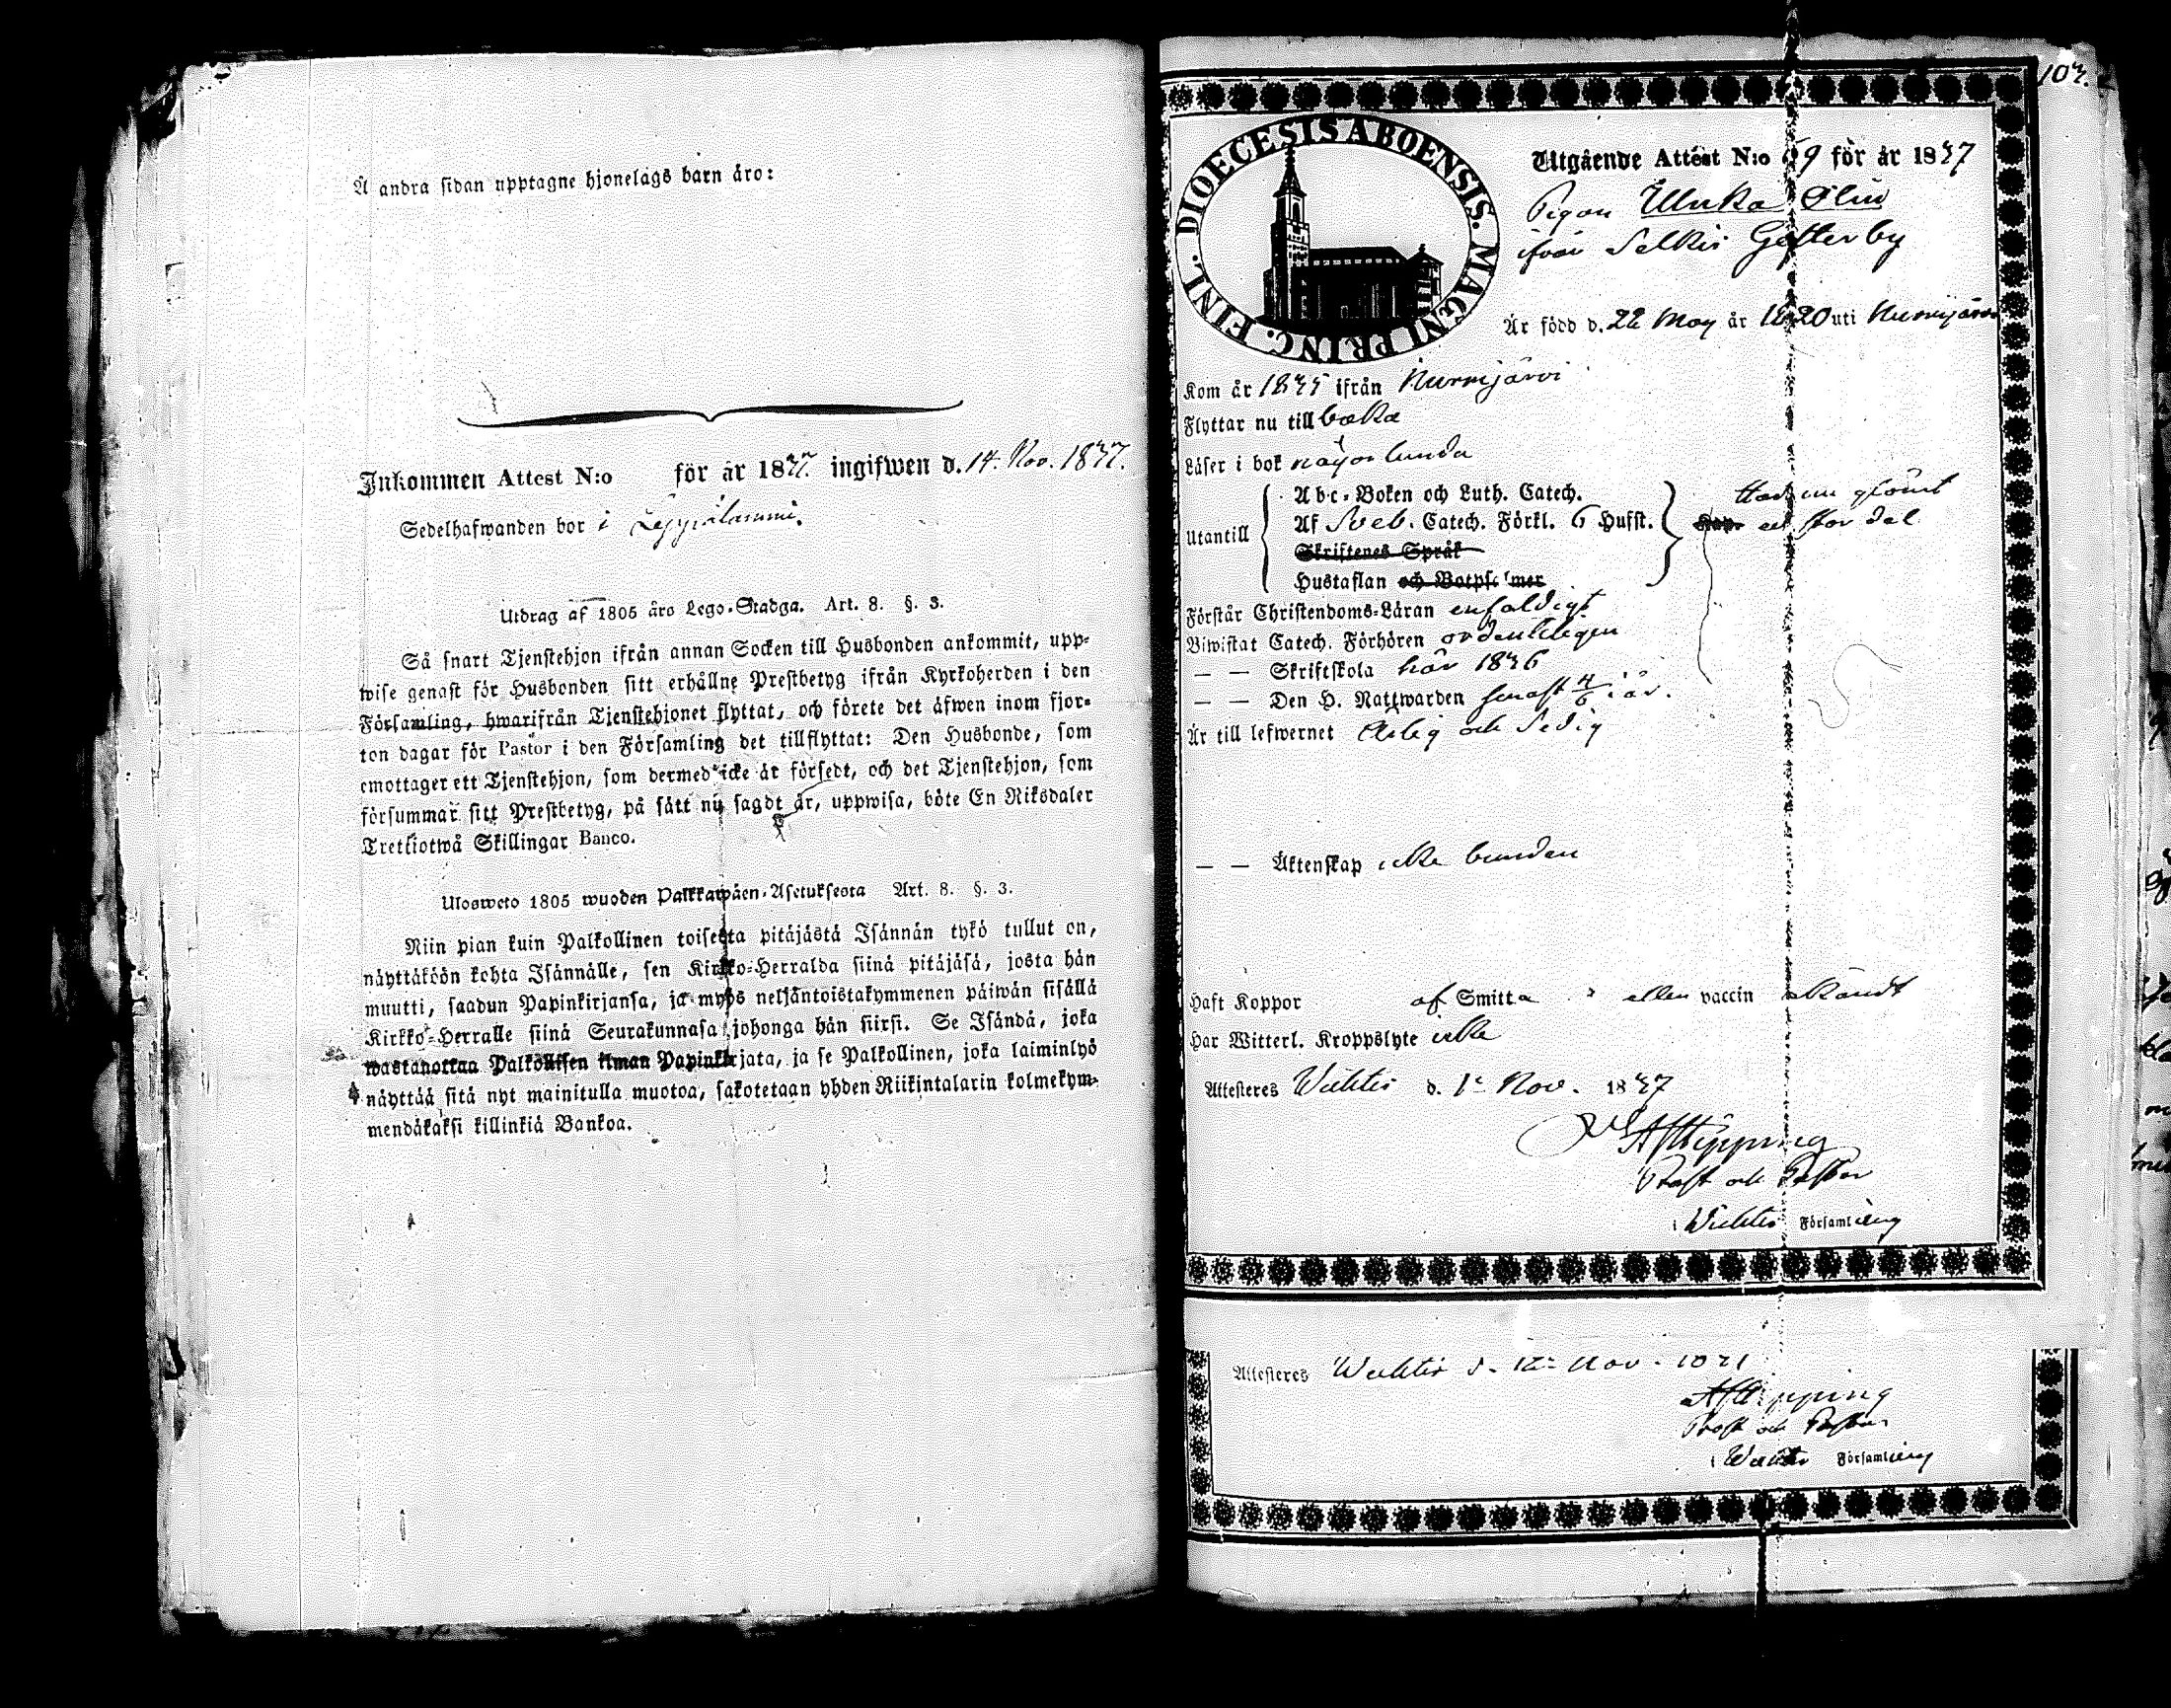 Å andra sidan upptagne hjonelags barn äro:
Inkommen Attest N:o för år 1837. ingifwen d. 14. Nov. 1837.
Sedelhafwanden bor i Leppälammi.
Utdrag af 1805 års Lego-Stadga. Art. 8. §. 3.
Så snart Tjenstehjon ifrån annan Socken till Husbonden ankommit, upp-
wise genast för Husbonden sitt erhållne Prestbetyg ifrån Kyrkoherden i den
Församling, hwarifrån Tjenstehjonet flyttat, och förete det äfwen inom fjor-
ton dagar för Pastor i den Församling det tillflyttat: Den Husbonde, som
emottager ett Tjenstehjon, som dermed icke är försedt, och det Tjenstehjon, som
försummar sitt Prestbetyg, på sätt nu sagdt är, uppwisa, böte En Riksdaler
Trettiotwå Skillingar Banco.
Ulosweto 1805 wuoden Palkkawäen-Asetuksesta Art. 8. §. 3.
Niin pian kuin Palkollinen toisesta pitäjästä Isännän tykö tullut on,
näyttäköön kohta Isännälle, sen Kirkko-Herralda siinä pitäjäsä, josta hän
muutti, saadun Papinkirjansa, ja myös neljäntoistakymmenen päiwän sisällä
Kirkko-Herralle siinä Seurakunnasa johonga hän siirsi. Se Isändä, joka
wastanottaa Palkollisen ilman Papinkirjata, ja se Palkollinen, joka laiminlyö
näyttää sitä nyt mainitulla muotoa, sakotetaan yhden Riikintalarin kolmekym-
mendäkaksi killinkiä Bankoa.
103.
DIOECESIS ABOENSIS. MAGNI PRINC. FINL.
Utgående Attest N:o 69 för år 1837
Pigan Ulrika
ifrån Selkis Gesterby
Är född d. 22 May år 1820 uti Nurmijärvi
Kom år 1835 ifrån Nurmijärvi
Flyttar nu till
Läser i bok någorlunda
Utantill
Abc-Boken och Luth. Catech.
Af Sveb. Catech. Förkl. 6 Hufst.
Skriftenes Språk
Hustaflan och Botpsalmer
Har nu glömt
en stor del
Förstår Christendoms-Läran enfaldigt
Biwistat Catech. Förhören ordenteligen
— — Skriftskola här 1836
— — Den H. Nattwarden senast 4/6 i år.
Är till lefwernet Ärlig och Sedig
— — Äktenskap icke bunden
Haft Koppor af Smitta eller vaccin okändt
Har Witterl. Kroppslyte icke
Attesteres Wichtis d. 12 Nov. 1837
Prost och Pastor
i Wichtis Församling
Attesteres Wichtis d. 12 Nov.
Prost och Pastor
i Wichtis Församling